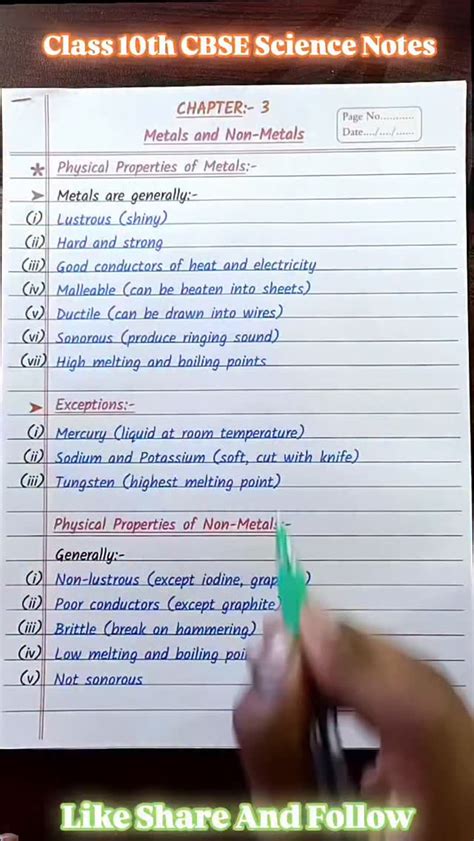 Class 10th CBSE Science Notes
CHAPTER:- 3
Metals and Non-Metals
Page No...........
Date..../..../......
* Physical Properties of Metals:-
➤ Metals are generally:-
(i) Lustrous (shiny)
(ii) Hard and strong
(iii) Good conductors of heat and electricity
(iv) Malleable (can be beaten into sheets)
(v) Ductile (can be drawn into wires)
(vi) Sonorous (produce ringing sound)
(vii) High melting and boiling points
➤ Exceptions:-
(i) Mercury (liquid at room temperature)
(ii) Sodium and Potassium (soft, cut with knife)
(iii) Tungsten (highest melting point)
Physical Properties of Non-Metals:-
Generally:-
(i) Non-lustrous (except iodine,
(ii) Poor conductors (except graphite)
(iii) Brittle (break on hammering)
(iv) Low melting and boiling
(v) Not sonorous
Like Share And Follow